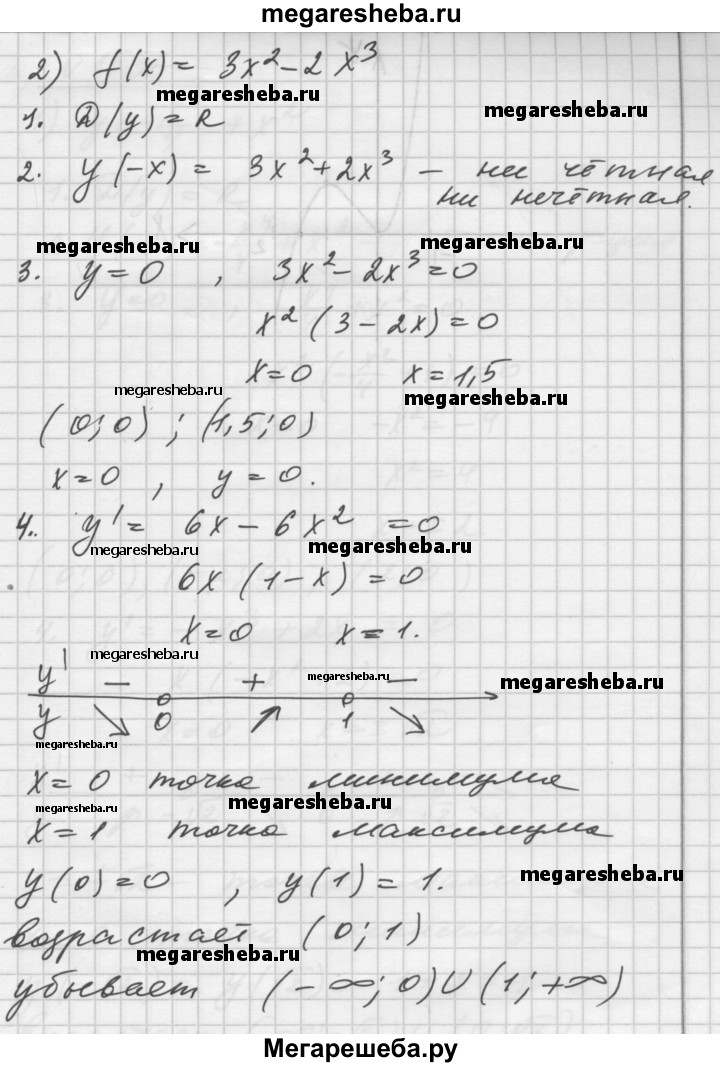 megaresheba.ru
2) f(x) = 3x² - 2x³
megaresheba.ru
megaresheba.ru
1. D(y) = R
2. y(-x) = 3x² + 2x³ – ни чётная
ни нечётная.
megaresheba.ru
megaresheba.ru
3. y = 0 , 3x² - 2x³ = 0
x² (3 - 2x) = 0
x = 0 x = 1,5
megaresheba.ru
megaresheba.ru
(0; 0) ; (1,5; 0)
x = 0 , y = 0.
4. y' = 6x - 6x² = 0
megaresheba.ru
megaresheba.ru
6x (1 - x) = 0
x = 0 x = 1.
megaresheba.ru
y' – + megaresheba.ru –
megaresheba.ru
y ↘ 0 ↗ 1 ↘
megaresheba.ru
x = 0 точка минимума
megaresheba.ru
megaresheba.ru
x = 1 точка максимума
y(0) = 0 , y(1) = 1.
megaresheba.ru
возрастает (0; 1)
megaresheba.ru
убывает (-∞; 0) U (1; +∞)
Мегарешеба.ру